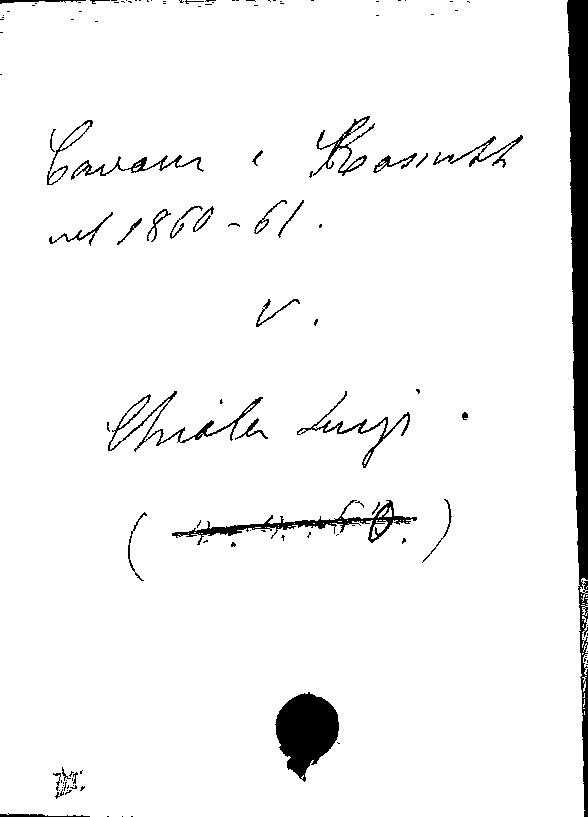 Cavour e Kossuth
nel 1860-61.
V.
Chiala Luigi.